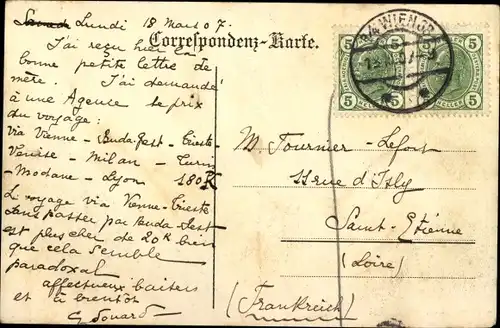 Lundi 18 Mars 07.
Correspondenz-Karte.
J'ai reçu hier ta
bonne petite lettre de
mère. J'ai demandé
à une Agence le prix
du voyage :
via Vienne - Buda-Pest - Trieste
Venise - Milan - Turin
- Modane - Lyon 180 K
Le voyage via Vienne-Trieste
sans passer par Buda-Pest
est plus cher de 20K bien
que cela semble
paradoxal
affectueux baisers
et à bientôt
Edouard
WIEN
5 5 5 5
HELLER HELLER
M Tournier-Lefort
11 rue d'Isly
Saint-Etienne
(Loire)
(Frankreich)